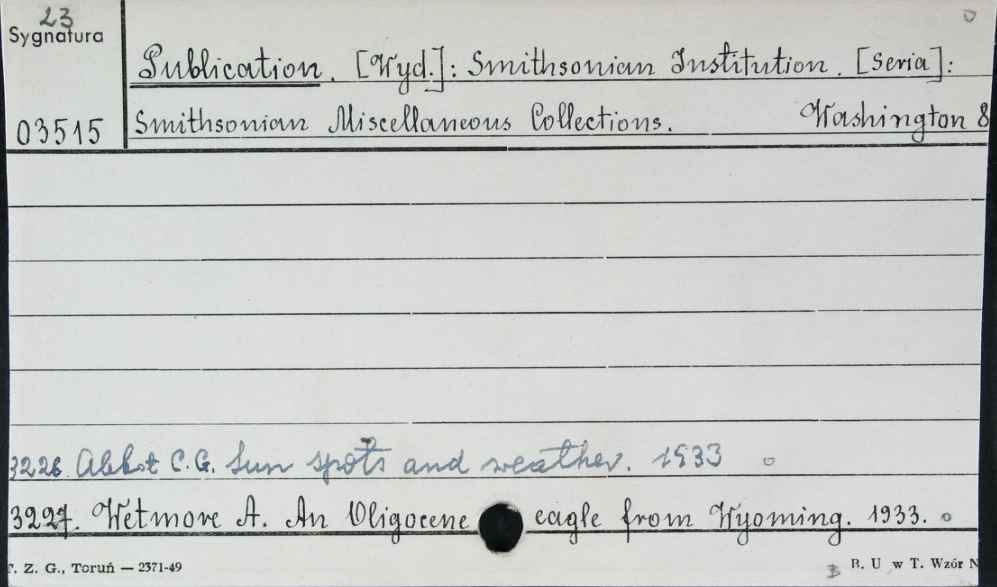 23
Sygnatura
Publication. [Wyd.]: Smithsonian Institution. [Seria]:
03515 Smithsonian Miscellaneous Collections. Washington 8
3226. Abbot C.G. Sun spots and weather. 1933
3227. Wetmore A. An Oligocene eagle from Wyoming. 1933.
. Z. G., Toruń — 2371-49 B. U w T. Wzór N